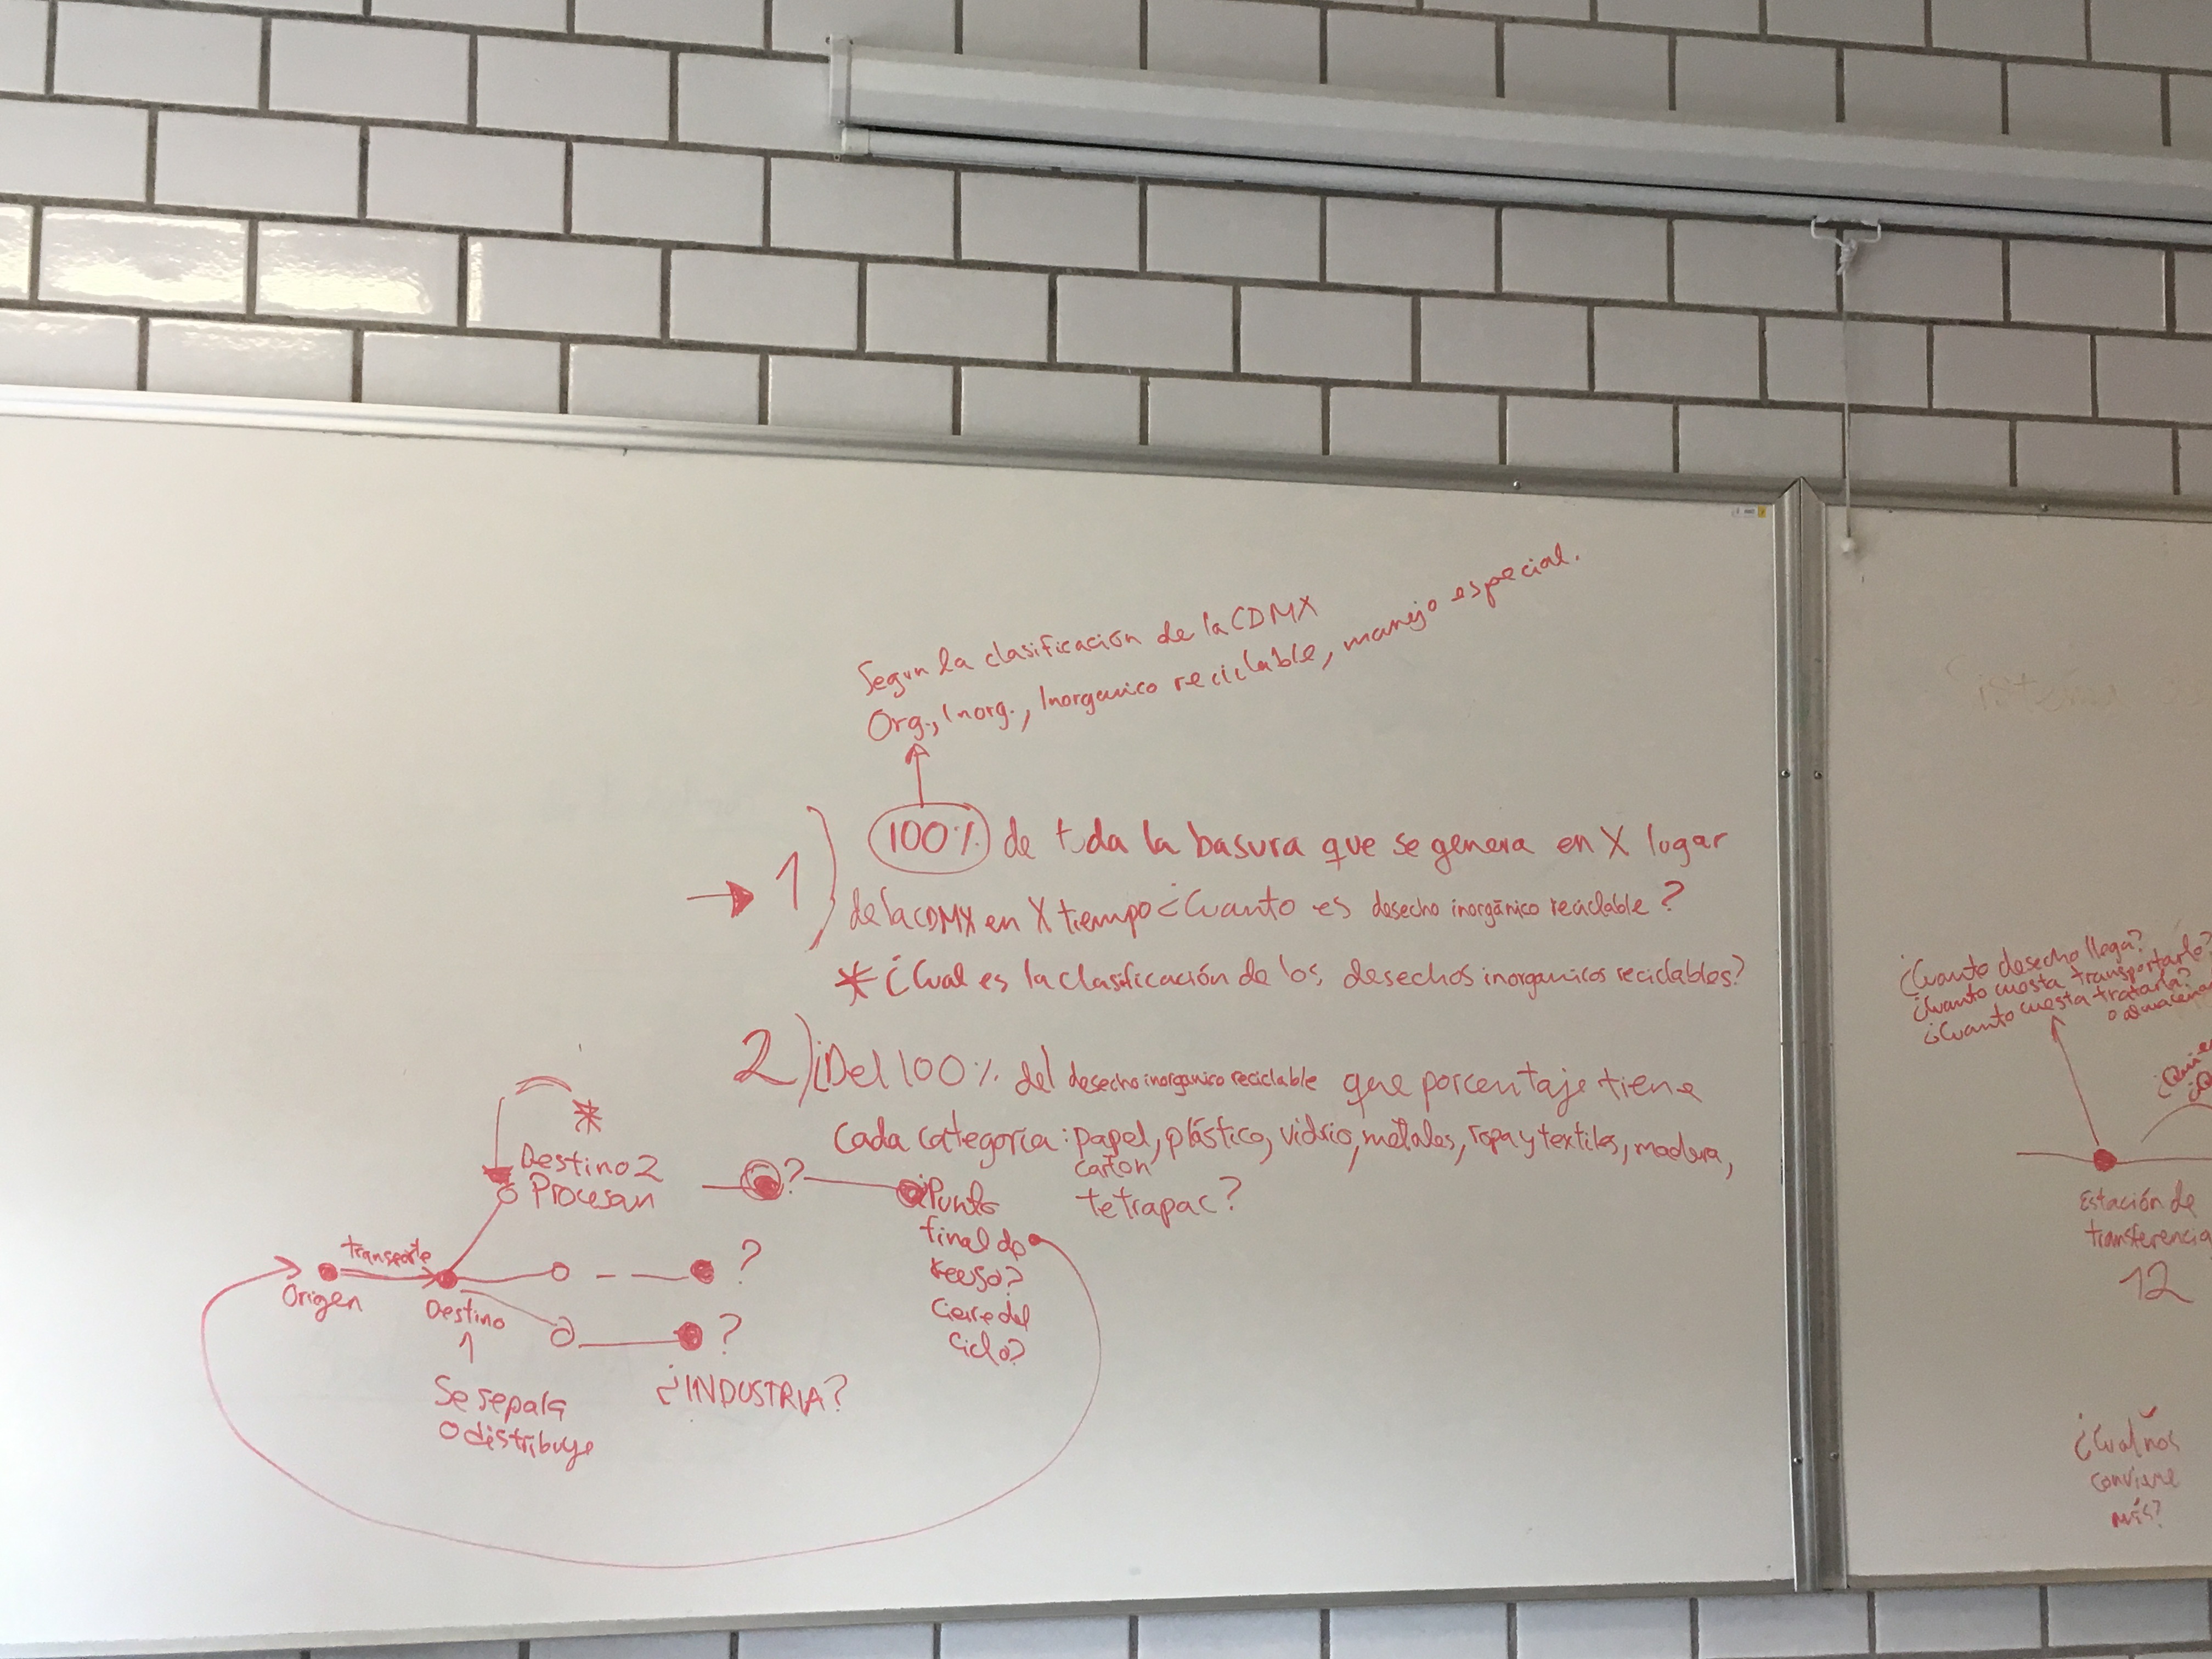 Segun la clasificación de la CDMX
Org., Inorg., Inorganico reciclable, manejo especial.
1) 100% de toda la basura que se genera en X lugar
de la CDMX en X tiempo ¿Cuanto es desecho inorgánico reciclable?
* ¿Cual es la clasificación de los desechos inorganicos reciclables?
2) ¿Del 100% del desecho inorganico reciclable que porcentaje tiene
Cada categoria: papel, plástico, vidrio, metales, ropa y textiles, madera,
cartón
tetrapac?
*
Destino 2
Procesan
?
¿Punto
final de
reuso?
Cierre del
Ciclo?
transporte
Origen
Destino
1
Se separa
o distribuye
?
?
¿INDUSTRIA?
¿Cuanto desecho llega?
¿Cuanto cuesta transportarlo?
¿Cuanto cuesta tratarla?
Estación de
transferencia
12
¿Cual nos
conviene
más?